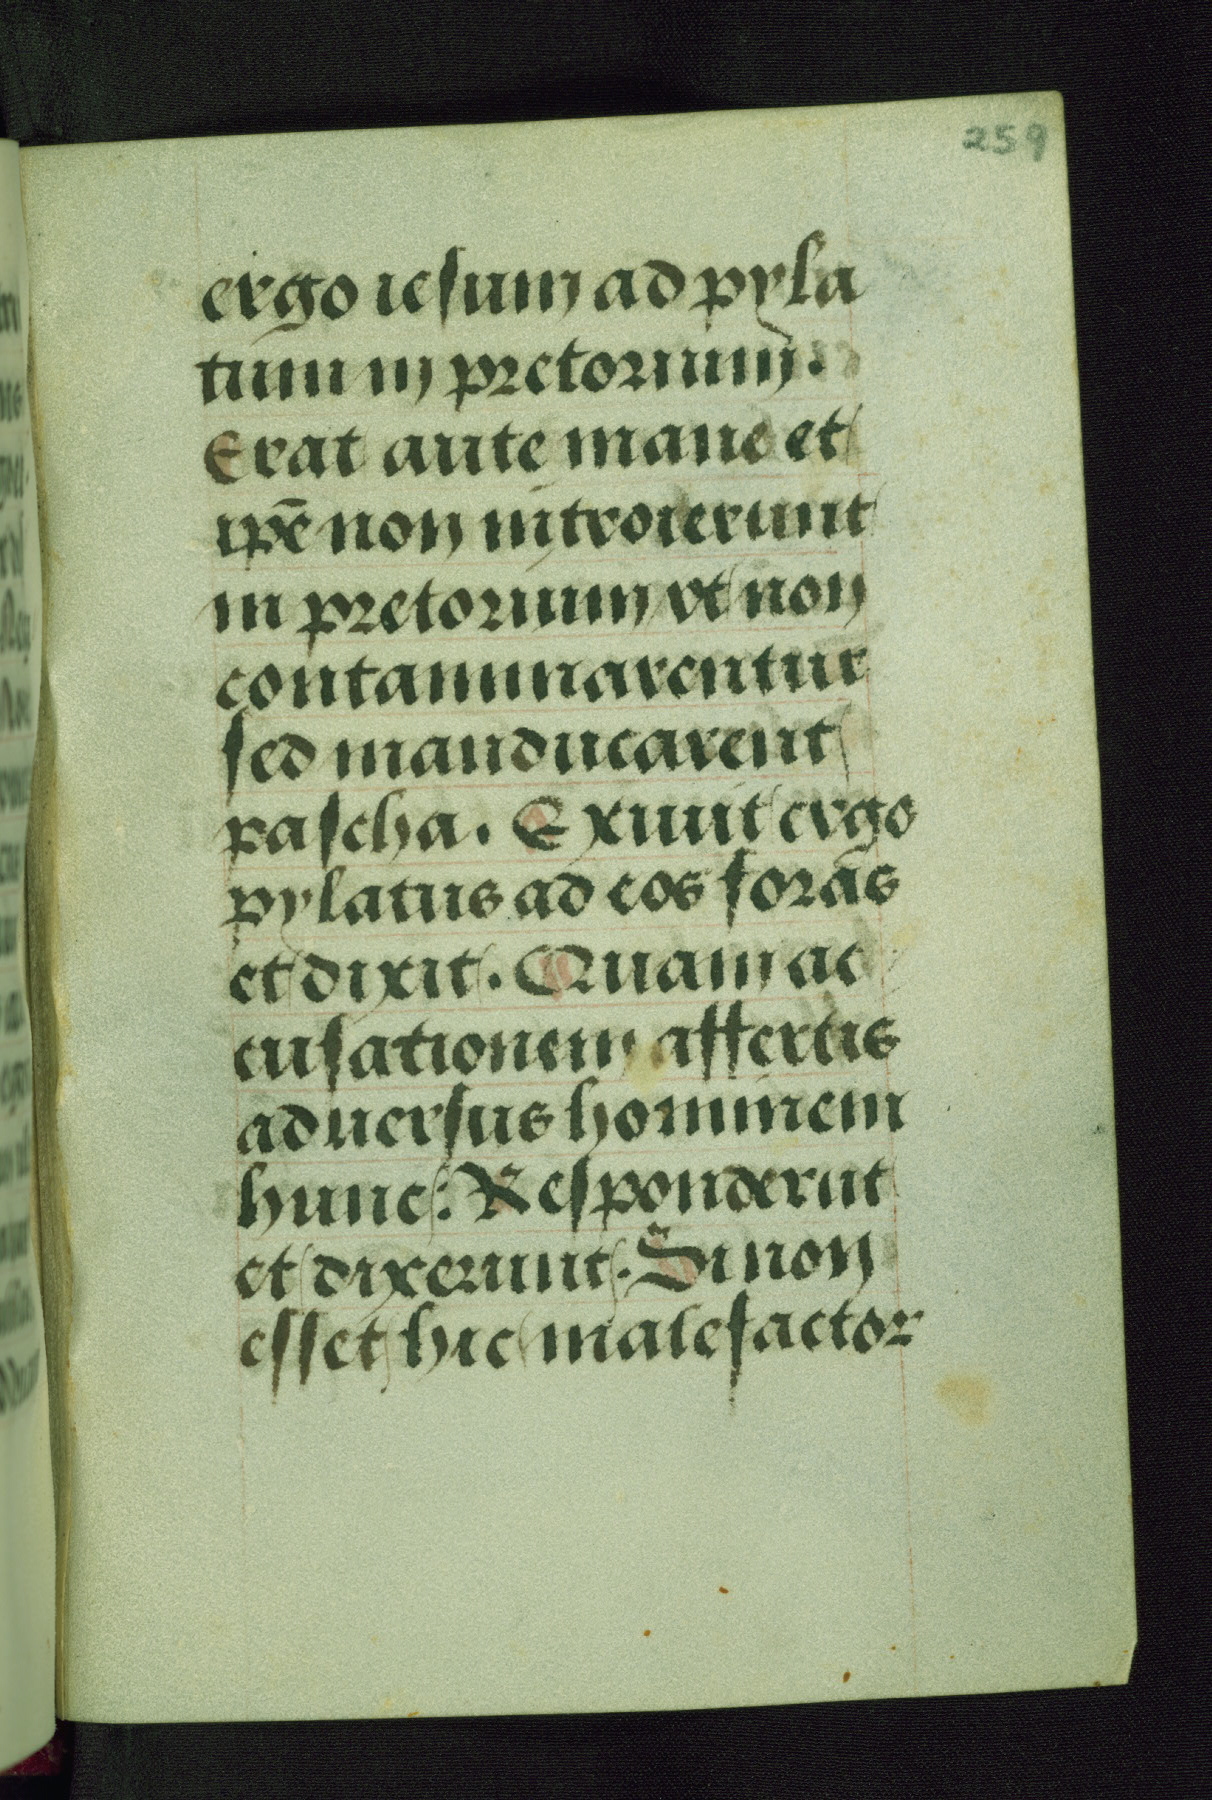 259
ergo iesum ad pyla
tum in pretorium.
Erat autē mane et
ipſe non introierunt
in pretorium vt non
contaminarentur
sed manducarent
pascha. Exiuit ergo
pylatus ad eos foras
et dixit. Quam ac
cusationem affertis
aduersus hominem
hunc: Responderūt
et dixerunt. Si non
esset hic malefactor